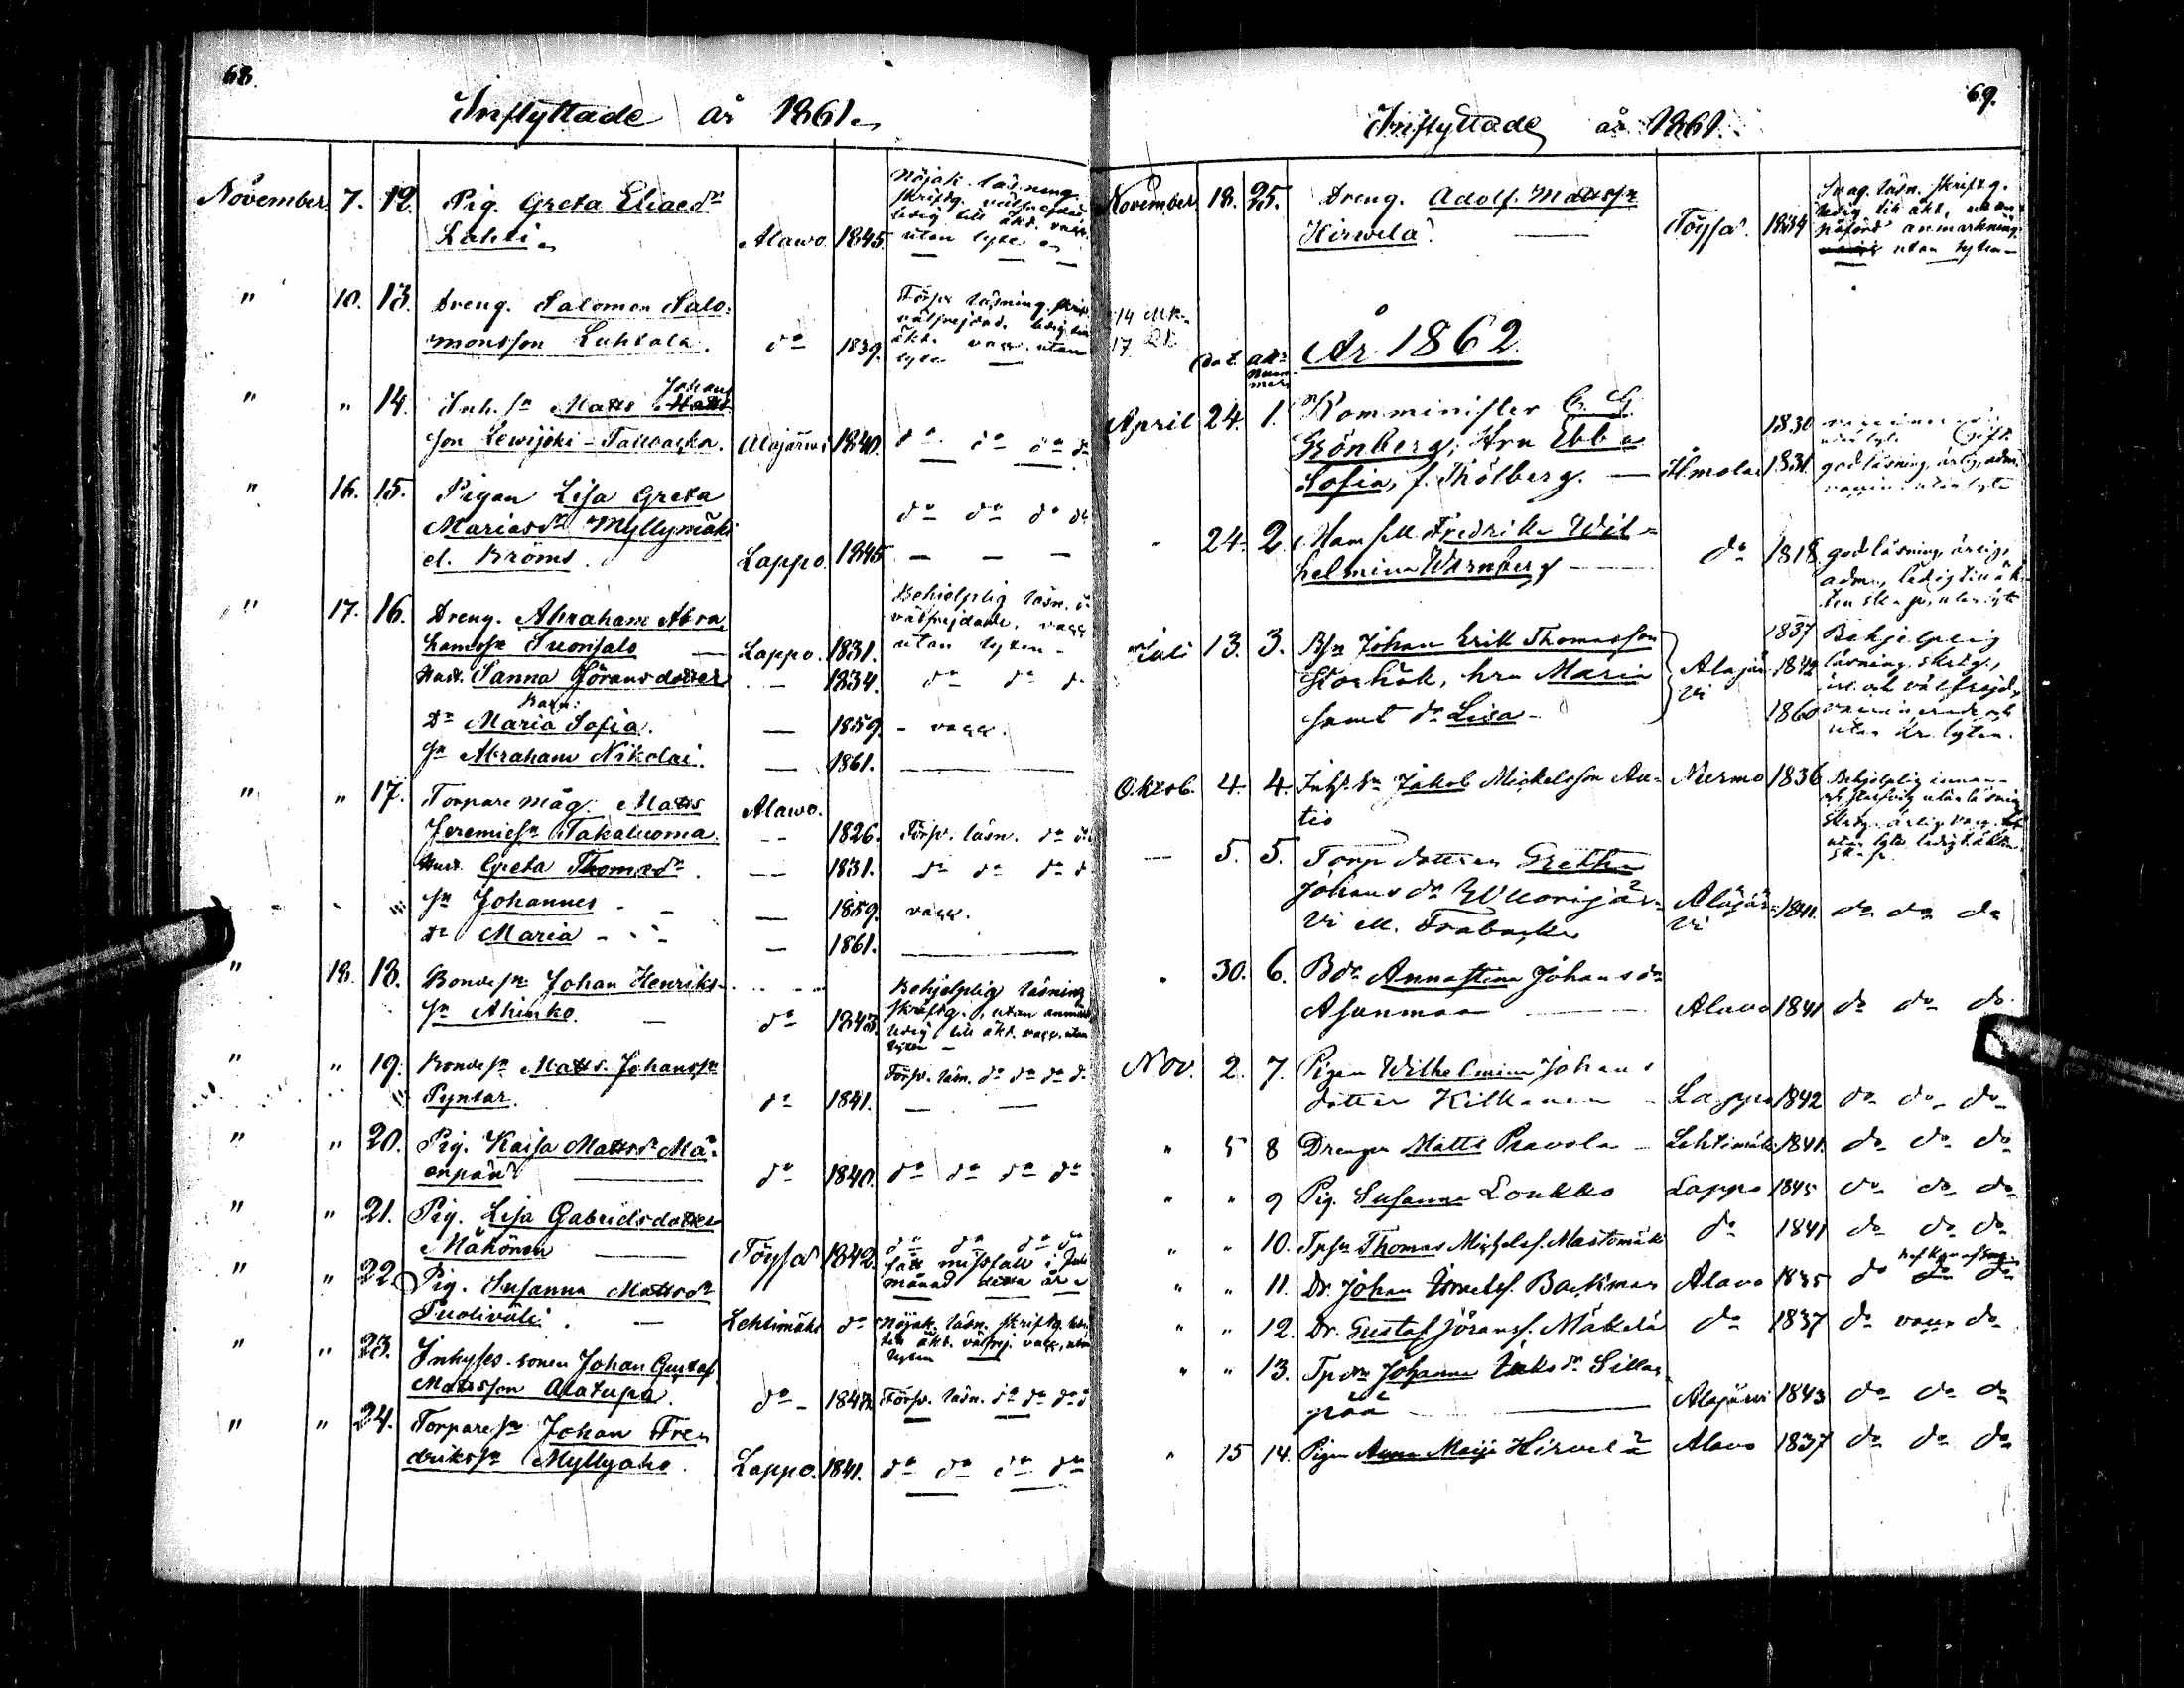 68.
Inflyttade år 1861.
November. 7. 12. Pig. Greta Eliaedr Lahti. Alawo. 1845. Nöjak. läsning
skriftg. välfrejdad,
ledig till äkt. vacc.
utan lyte.
" 10. 13. Dreng. Salomon Salo-
monsson Luhtala. do 1839. Försv. läsning. skrift
välfrejdad. ledig till
äkt. vacc. utan
lyte
" " 14. Inh. sn Matts Johans
son Lewijoki-Tallbacka. Alajärwi 1840. do do do do
" 16. 15. Pigan Lisa Greta
Mariasdr Myllymäki
el. Kröms. Lappo. 1845 do do do do
" 17. 16. Dreng. Abraham Abra
hamssn Suonsalo Lappo. 1831. Behjelplig läsn.
välfrejdade, vacc
utan lyten
Hust. Sanna Göransdotter 1834. do do do
Barn:
Dr Maria Sofia. 1859. vacc.
Sn Abraham Nikolai. 1861.
" " 17. Torpare måg. Matts Alawo.
Jeremiesn Takaluoma. 1826. Försv. läsn. do do
Hust. Greta Thomasdr. 1831. do do do do
Sn Johannes 1859. vacc.
Dr Maria 1861.
" 18. 18. Bondesn Johan Henriks-
sn Ahinko do 1843. Behjelplig läsning
skriftg., utan anmärk
ledig till äkt. vacc. utan
lyten
" " 19. Bondesn Matts Johanssn
Pyntar. do 1841. Försv. läsn. do do do do
" " 20. Pig. Kaisa Mattsdr Mä-
enpää do 1840. do do do do
" " 21. Pig. Lisa Gabrielsdotter
Mähönen Töysä 1842. do do do do
fått missfall i
månad detta år
" " 22. Pig. Susanna Mattsdr
Puoliväli. Lehtimäki do Nöjak. läsn. skriftg. led.
till äkt. välfrej. vacc, utan
lyten
" " 23. Inhyses-sonen Johan Gustaf
Mattsson Alatupa. do Försv. läsn. do do do
" " 24. Torparesn Johan Fre-
drikssn Myllyaho. Lappo. 1841. do do do do
69.
Inflyttade år 1861.
November. 18. 25. Dreng. Adolf. Mattssn
Hirwelä. Töysä. 1834 Svag. läsn. skriftg.
ledig till äkt, utan
anmärkning.
utan lyten
14 MK.
17 Qk
Dat. Att:
Num-
mer
År 1862.
April 24. 1. Komminister G. G. 1830
Grönberg; Hru Ebba
Sofia, f. Thölberg. Ilmola 1831. god läsning, ärlig, adm.
vaccin. utan lyte
" 24. 2. Mamsell Fredrika Wil-
helmina Warnberg do 1818 god läsning, ärlig,
adm., ledig till äk-
tenskap, utan lyte
Juli 13. 3. Bsn Johan Erik Thomasson 1837 Behjelplig
Storhök, hru Maria Alajär- 1842 läsning skrtg.,
samt dr Lisa vi 1860 ärl. och välfrejd,
vaccinerade och
utan kr. lyten.
Oktob. 4. 4. Inhs. sn Jakob Mickelsson An- Nurmo 1836 Behjelplig innan-
tio
5. 5. Torp dottren Gretha
Johansdr Wuorijär- Alajär- 1841. do do do
vi el. Frabacka vi
" 30. 6. Bdr Annastina Johansdr
Asunmaa Alavo 1841 do do do
Nov. 2. 7. Pigan Wilhelmina Johans
dotter Kilkanen Lappo 1842 do do do
" 5 8 Drengen Matts Pravola Lehtimäki 1841. do do do
" " 9 Pig. Susanna Loukko Lappo 1845 do do do
" " 10. Tpsn Thomas Michelss. Mastomäki do 1841 do do do
" " 11. Dr. Johan Israelss. Backman Alavo 1835 do do do
" " 12. Dr. Gustaf Jöranss. Mäkelä do 1837 do vacc. do
" " 13. Tpdr Johanna Isaksdr Sillan-
pää Alajärvi 1843 do do do
" 15 14. Pigan Anna Maija Hirvelä Alavo 1837 do do do